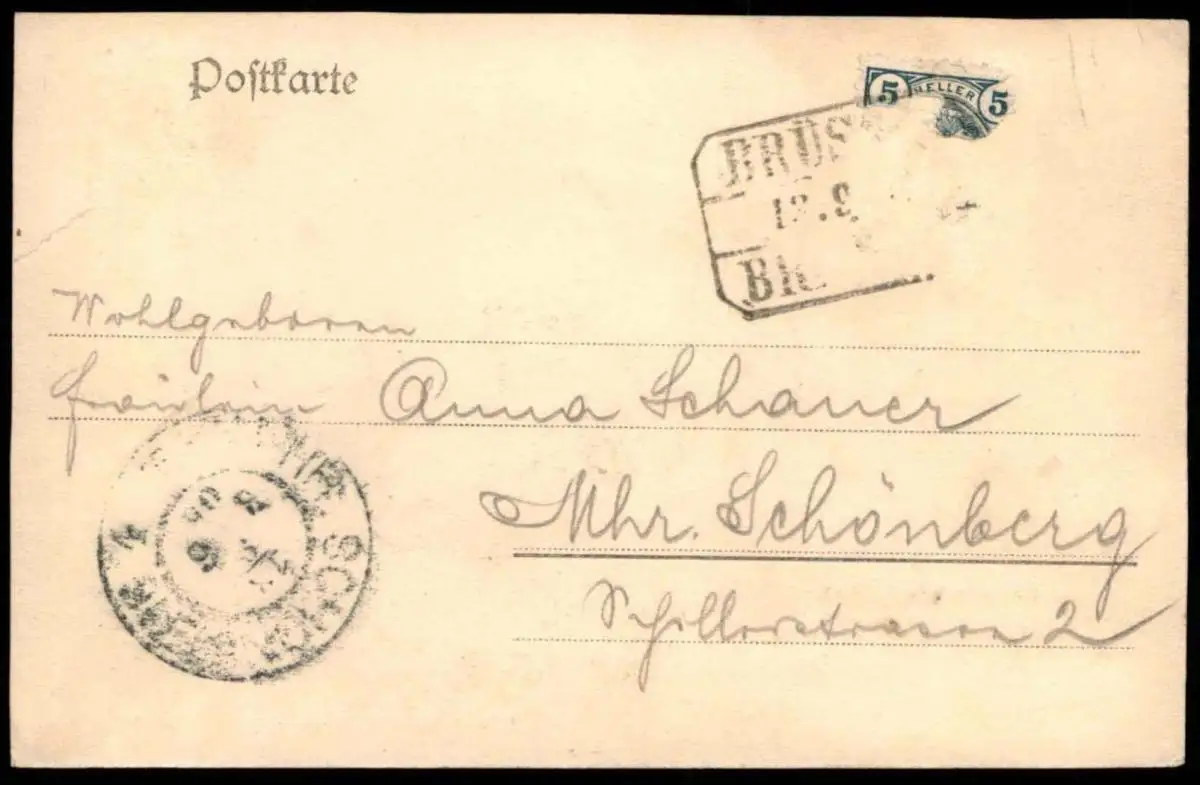 Postkarte
5 HELLER 5
BRÜS
Wohlgeboren
Fräulein Anna Schauer
Mhr. Schönberg
Schillerstrasse 2